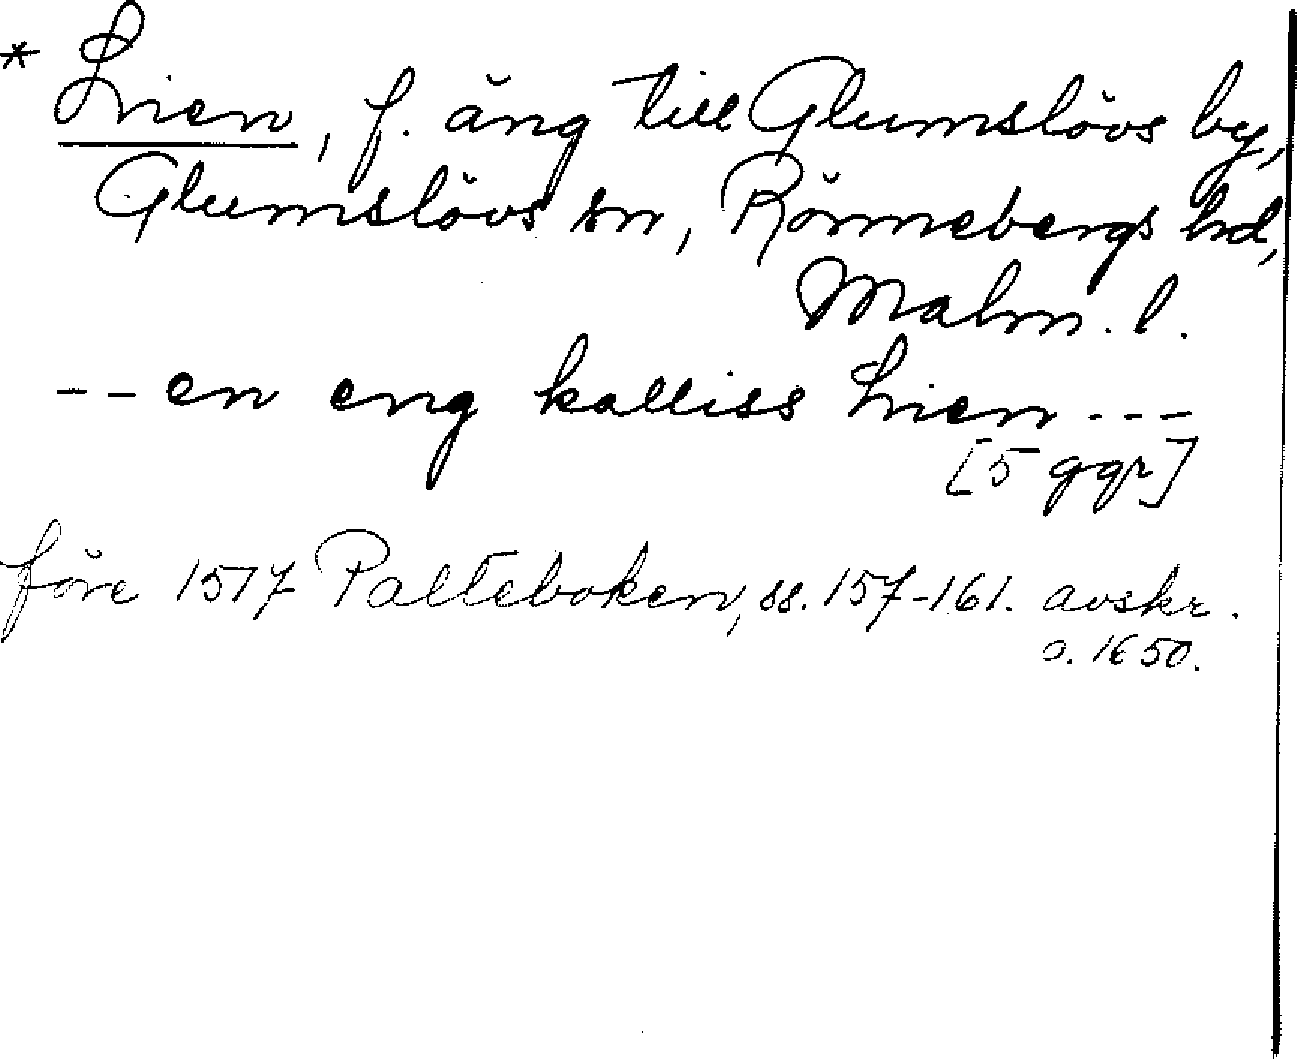 * Lien, f. äng till Glumslövs by,
Glumslövs sn, Rönnebergs hd,
Malm. l.
-- en eng kalliss Lien ---
[5 ggr]
före 1517 Palteboken, ss. 157-161. avskr.
o. 1650.